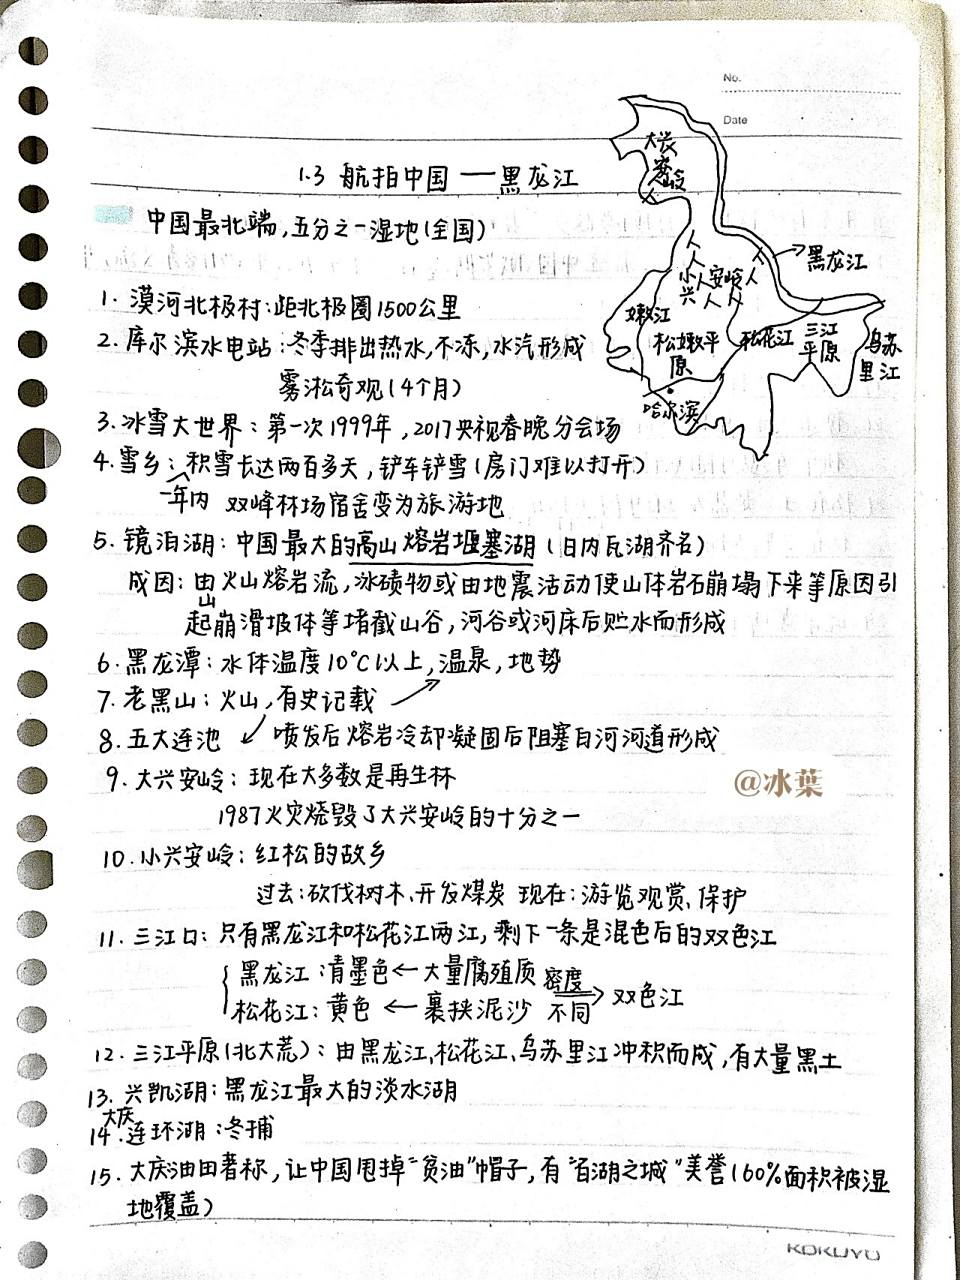 No.
Date
1.3 航拍中国——黑龙江
中国最北端,五分之一湿地(全国)
大兴
安岭
黑龙江
小兴安岭
嫩江
松嫩平原
松花江
三江平原
乌苏里江
哈尔滨
1. 漠河北极村:距北极圈1500公里
2. 库尔滨水电站:冬季排出热水,不冻,水汽形成
雾凇奇观(4个月)
3. 冰雪大世界:第一次1999年,2017央视春晚分会场
4. 雪乡:积雪长达两百多天,铲车铲雪(房门难以打开)
一年内 双峰林场宿舍变为旅游地
5. 镜泊湖:中国最大的高山熔岩堰塞湖(日内瓦湖齐名)
成因:由火山熔岩流,冰碛物或由地震活动使山体岩石崩塌下来等原因引
起山崩滑坡体等堵截山谷,河谷或河床后贮水而形成
6. 黑龙潭:水体温度10℃以上,温泉,地势
7. 老黑山:火山,有史记载
8. 五大连池 ↙ 喷发后熔岩冷却凝固后阻塞白河河道形成
9. 大兴安岭:现在大多数是再生林
1987火灾烧毁了大兴安岭的十分之一
@冰葉
10. 小兴安岭:红松的故乡
过去:砍伐树木、开发煤炭 现在:游览观赏、保护
11. 三江口:只有黑龙江和松花江两江,剩下一条是混色后的双色江
黑龙江:青墨色←大量腐殖质
松花江:黄色←裹挟泥沙
密度不同⇒双色江
12. 三江平原(北大荒):由黑龙江、松花江、乌苏里江冲积而成,有大量黑土
13. 兴凯湖:黑龙江最大的淡水湖
14. 大庆连环湖:冬捕
15. 大庆油田著称,让中国甩掉“贫油”帽子,有“百湖之城”美誉(60%面积被湿
地覆盖)
KOKUYO